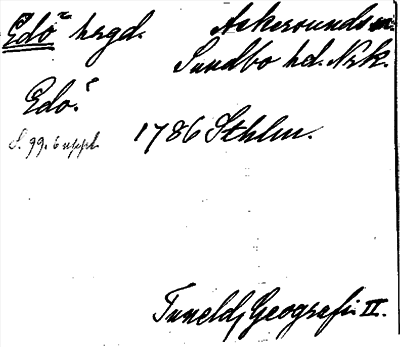 Edö hrgd. Askersunds
Sundbo hd. Nrk.
Edö.
S. 99. 6 uppl. 1786 Sthlm.
Tuneld, Geografi II.